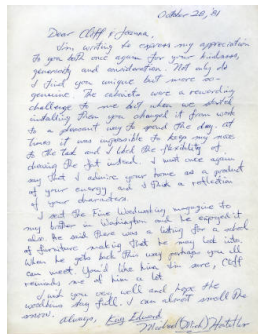 October 20, '81
Dear Cliff & Joanna,
I'm writing to express my appreciation
to you both once again for your kindness,
generosity and consideration. Not only did
I find you unique but more so-
genuine. The cabinets were a rewarding
challenge to me but when we started
installing them you changed it from work
to a pleasant way to spend the day. At
times it was impossible to keep my nose
to the task and I liked the flexibility of
chewing the fat instead. I must once again
say that I admire your home as a product
of your energy and I think a reflection
of your characters.
I sent the Fine Woodworking magazine to
my brother in Washington and he enjoyed it
also. He said there was a listing for a school
of furniture making that he may look into.
When he gets back this way perhaps you all
can meet. You'd like him, I'm sure, Cliff
reminds me of him a lot.
I wish you very well and hope the
woodstove stays full. I can almost smell the
snow.
Always,
Michael (Mich)